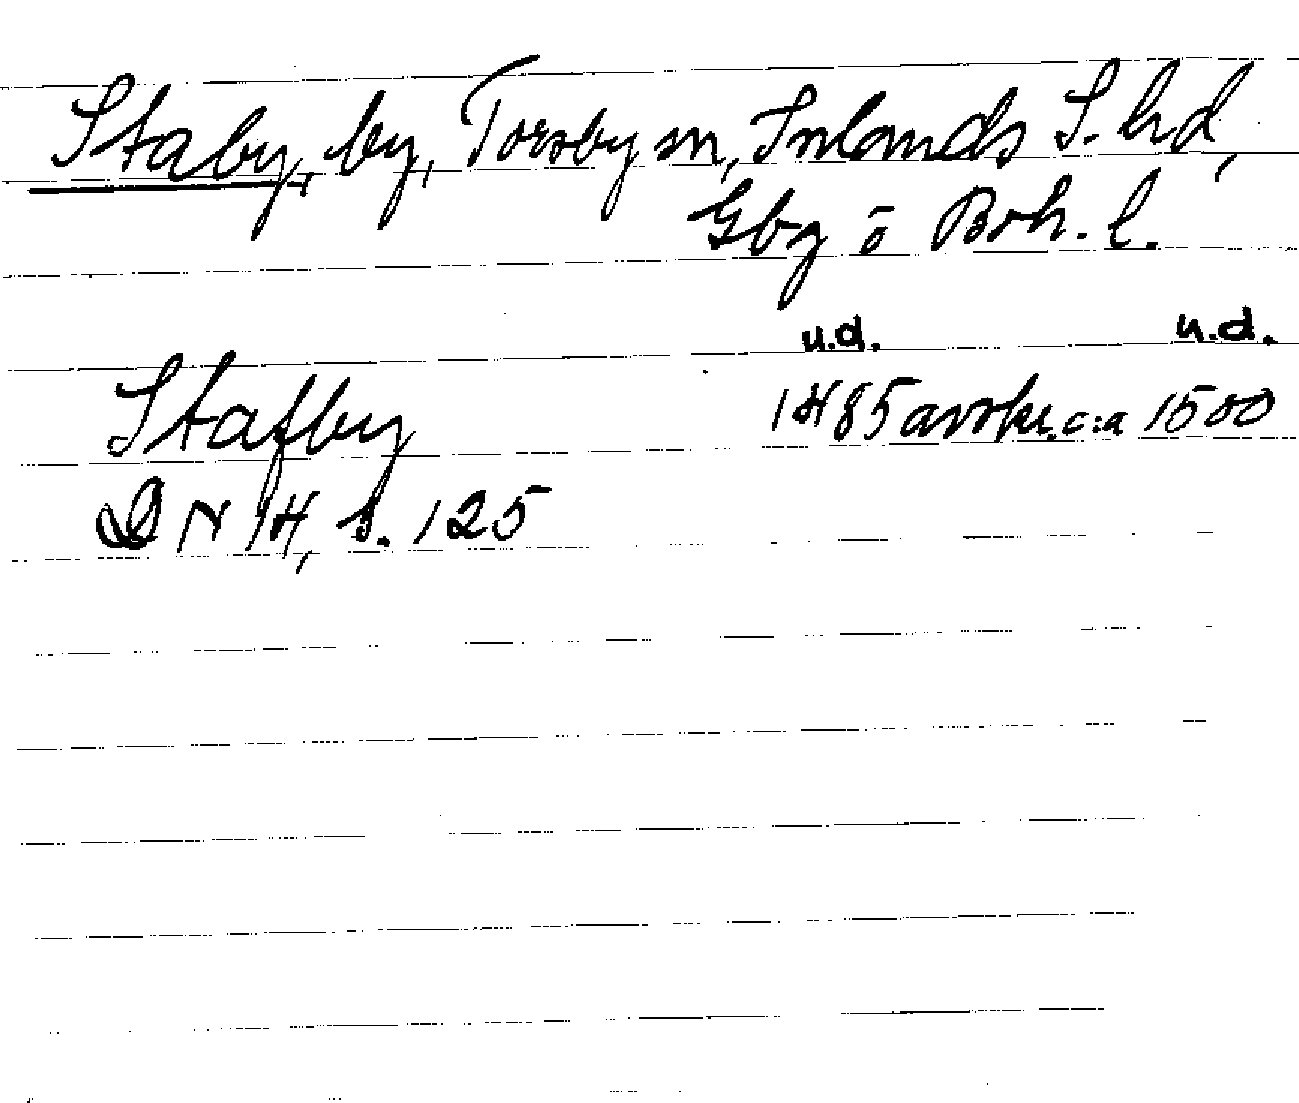 Staby, by, Torsby sn, Inlands S. hd,
Gbg ō Boh. l.
u.d. u.d.
Stafby 1485 avskr. c:a 1500
DN 14, s. 125